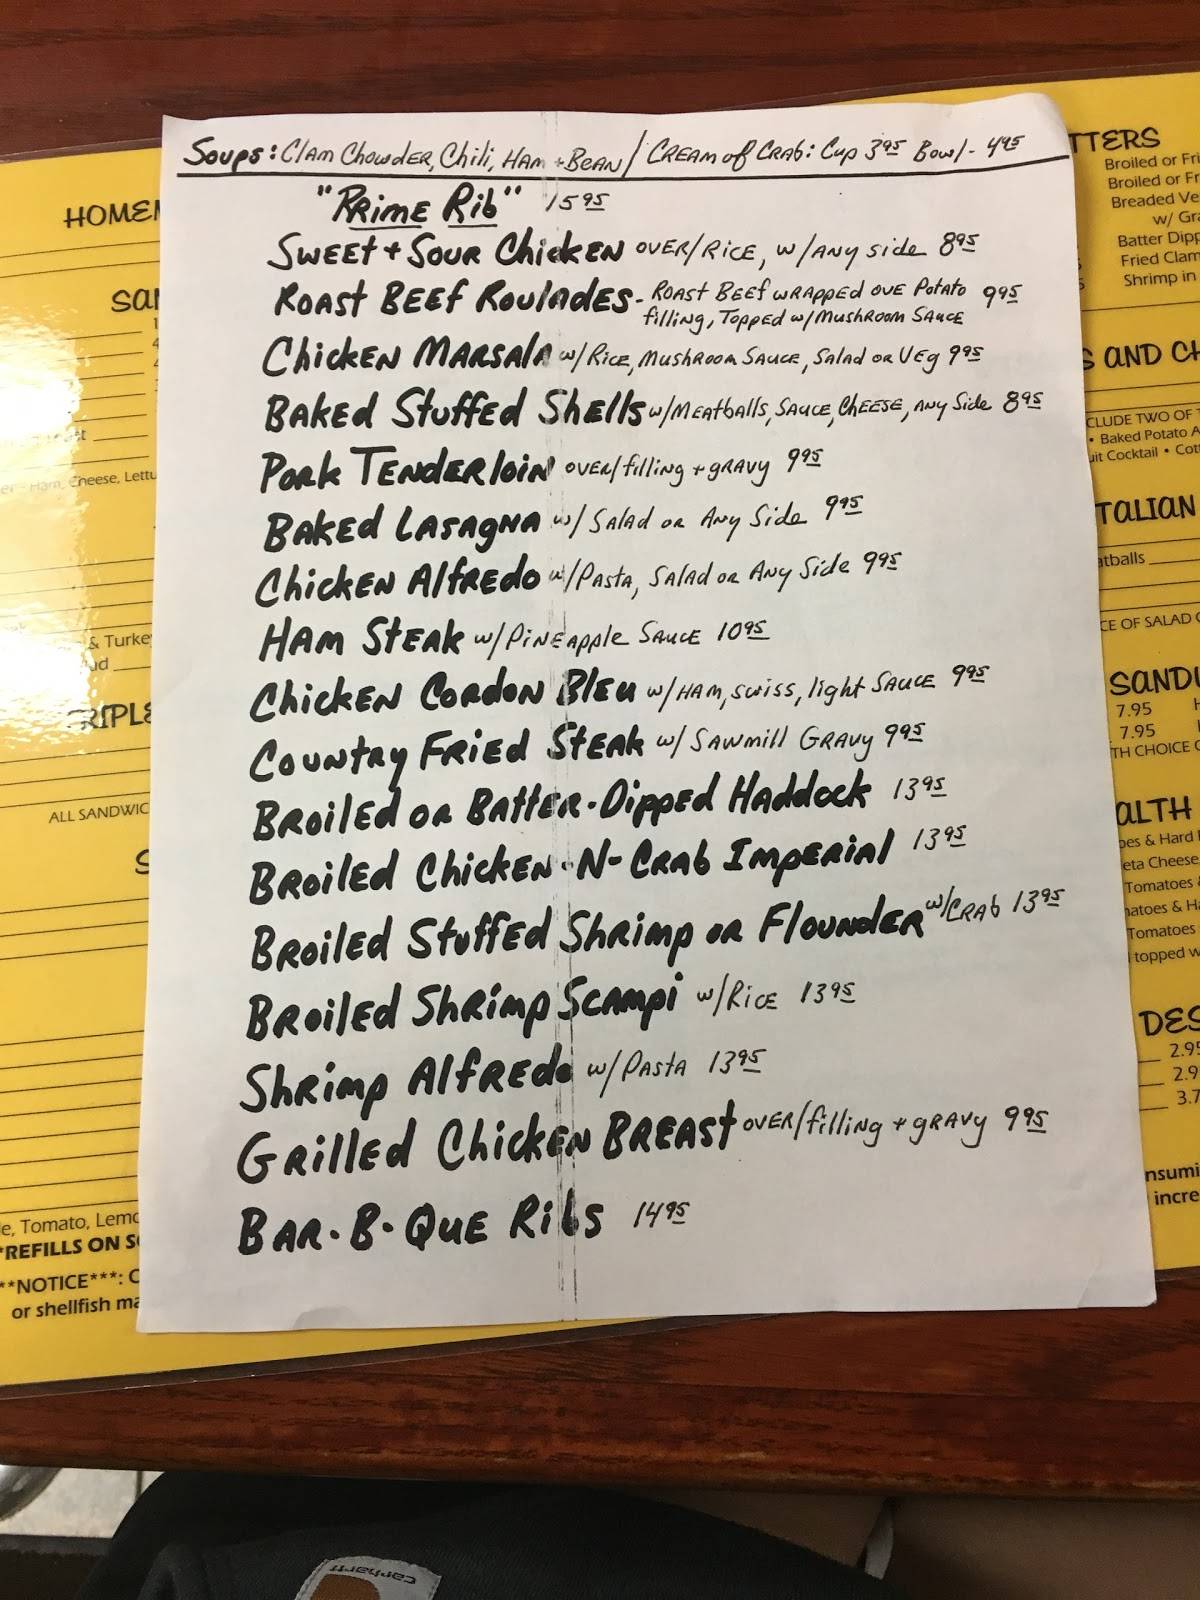 Soups: Clam Chowder, Chili, Ham + Bean / Cream of Crab: Cup 3.95 Bowl - 4.95
"Prime Rib" 15.95
Sweet + Sour Chicken over/Rice, w/Any side 8.95
Roast Beef Roulades - Roast Beef wrapped ove Potato filling, Topped w/Mushroom Sauce 9.95
Chicken Marsala w/Rice, Mushroom Sauce, Salad or Veg 9.95
Baked Stuffed Shells w/Meatballs, Sauce, Cheese, Any Side 8.95
Pork Tenderloin over/filling + gravy 9.95
Baked Lasagna w/ Salad or Any Side 9.95
Chicken Alfredo w/Pasta, Salad or Any Side 9.95
Ham Steak w/Pineapple Sauce 10.95
Chicken Cordon Bleu w/Ham, swiss, light Sauce 9.95
Country Fried Steak w/ Sawmill Gravy 9.95
Broiled or Batter-Dipped Haddock 13.95
Broiled Chicken-N-Crab Imperial 13.95
Broiled Stuffed Shrimp or Flounder w/Crab 13.95
Broiled Shrimp Scampi w/Rice 13.95
Shrimp Alfredo w/Pasta 13.95
Grilled Chicken Breast over/filling + gravy 9.95
Bar-B-Que Ribs 14.95
HOME
SA
Ham, Cheese, Lettu
& Turke
TRIPLE
ALL SANDWIC
S
e, Tomato, Lemo
*REFILLS ON S
**NOTICE***: C
or shellfish ma
TTERS
Broiled or Fri
Broiled or Fr
Breaded Ve
w/ Gra
Batter Dipp
Fried Clam
Shrimp in
S AND CH
CLUDE TWO OF
• Baked Potato A
uit Cocktail • Cot
TALIAN
atballs
CE OF SALAD
SANDU
7.95 H
7.95
TH CHOICE
ALTH
oes & Hard
eta Cheese
Tomatoes &
matoes & Ha
Tomatoes
topped w
DES
2.95
2.9
3.7
nsumi
incre
carhartt